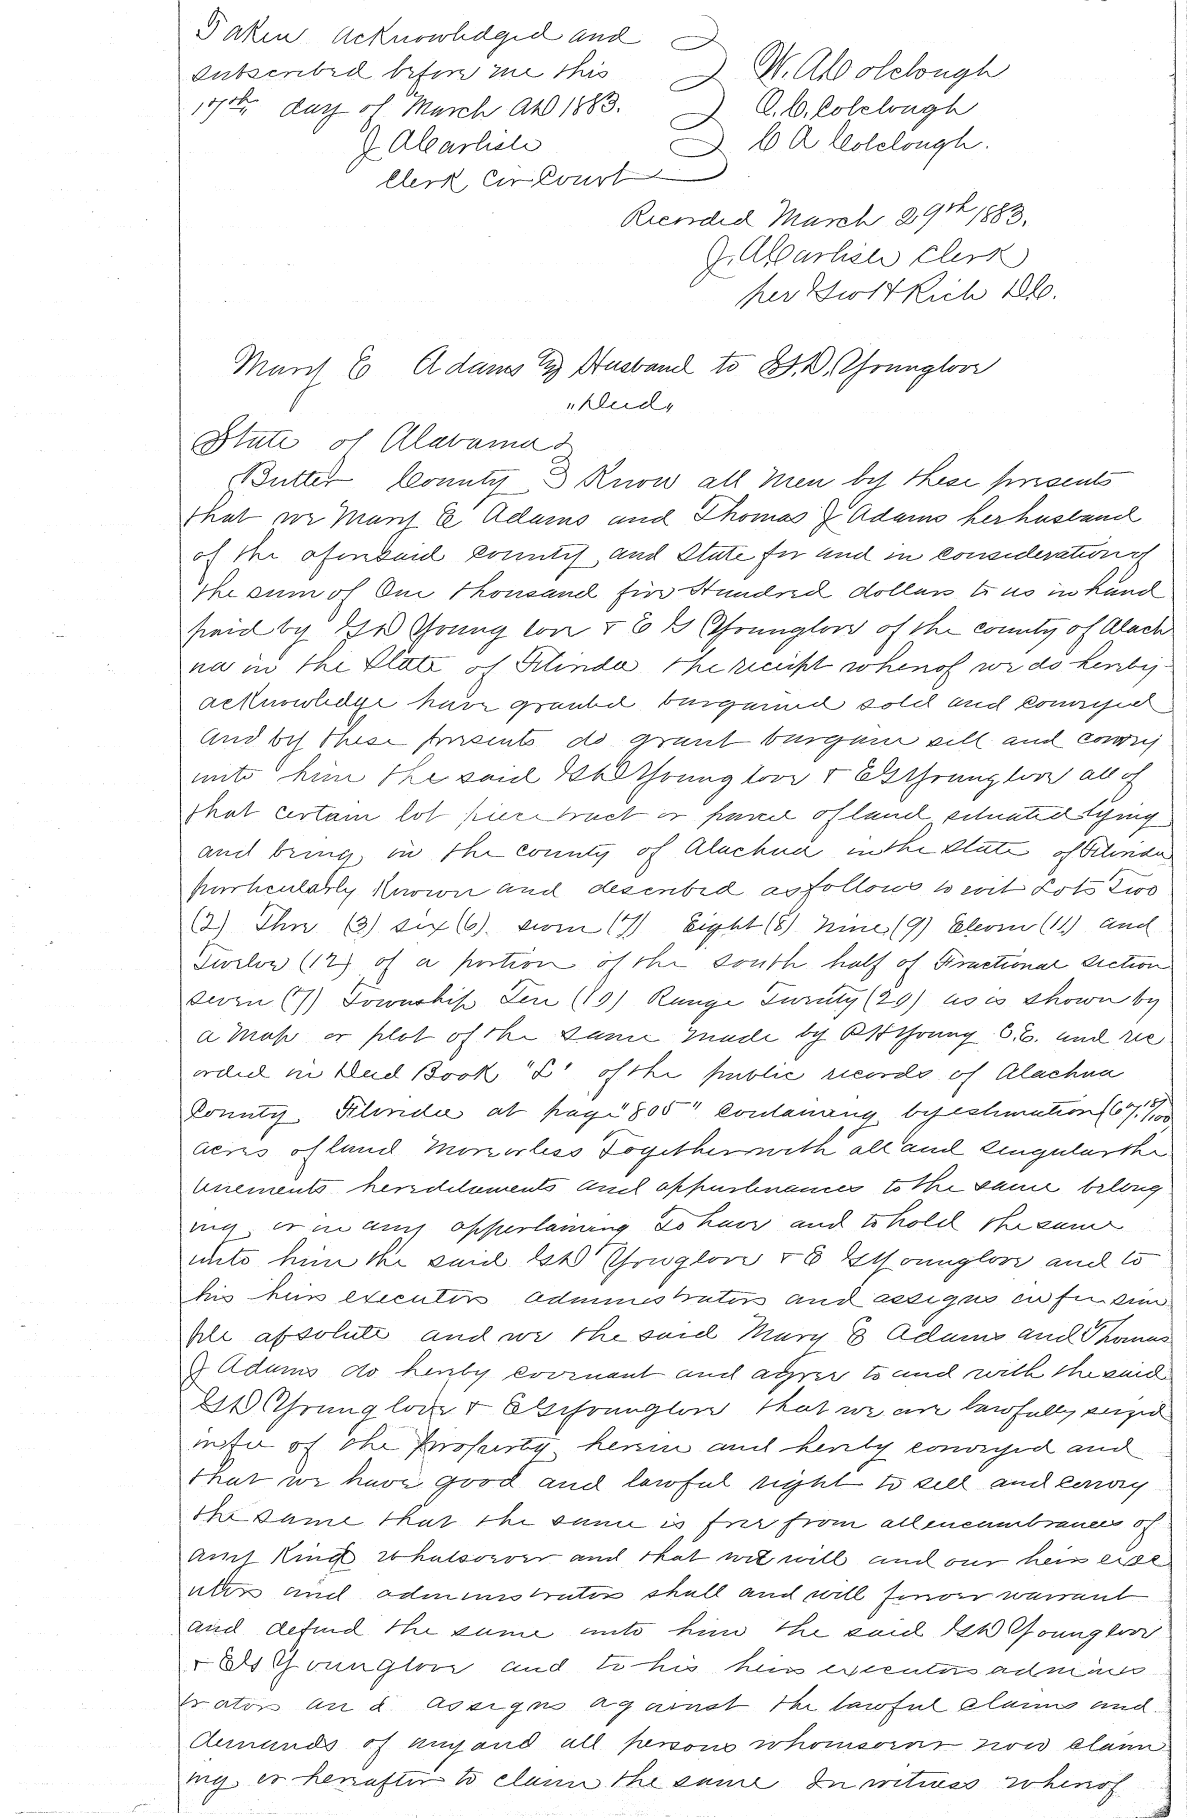 Taken acknowledged and
subscribed before me this
17th day of March AD 1883.
J A Carlisle
Clerk Cir Court
W. A. Colclough
C. C. Colclough
C A Colclough.
Recorded March 29th 1883.
J. A Carlisle Clerk
per Rich D.C.
Mary E Adams & Husband to Younglove
"Deed"
State of Alabama
Butler County Know all Men by these presents
that we Mary E Adams and Thomas J Adams her husband
of the aforesaid county and State for and in consideration of
the sum of One thousand five Hundred dollars to us in hand
paid by Young love & E S Younglove of the county of Alach
ua in the State of Florida the receipt whereof we do hereby
acknowledge have granted bargained sold and conveyed
and by these presents do grant bargain sell and convey
unto him the said Young love & E S Younglove all of
that certain lot piece tract or parcel of land situated lying
and being in the county of Alachua in the State of Florida
particularly Known and described as follows to wit Lots Two
(2) Three (3) six (6). seven (7) Eight (8) Nine (9) Eleven (11) and
Twelve (12) of a portion of the south half of Fractional section
seven (7) Township Ten (10) Range Twenty (20) as is shown by
a Map or plot of the same made by Young C.E. and rec
orded in Deed Book "L" of the public records of Alachua
County Florida at page "805" containing by estimation (67.
acres of land More or less Together with all and singular the
tenements hereditaments and appurtenances to the same belong
ing or in any appertaining To have and to hold the same
unto him the said Younglove & E S Younglove and to
his heirs executors administrators and assigns in fee sim
ple absolute and we the said Mary E Adams and Thomas
J Adams do hereby covenant and agree to and with the said
Young love & E S Younglove that we are lawfully seized
in fee of the property herein and hereby conveyed and
that we have good and lawful right to sell and convey
the same that the same is free from all encumbrances of
any Kind whatsoever and that we will and our heirs exec
utors and administrators shall and will forever warrant
and defend the same unto him the said Younglove
& E S Younglove and to his heirs executors adminis
trators and assigns against the lawful claims and
demands of any and all persons whomsoever now claim
ing or hereafter to claim the same In witness whereof